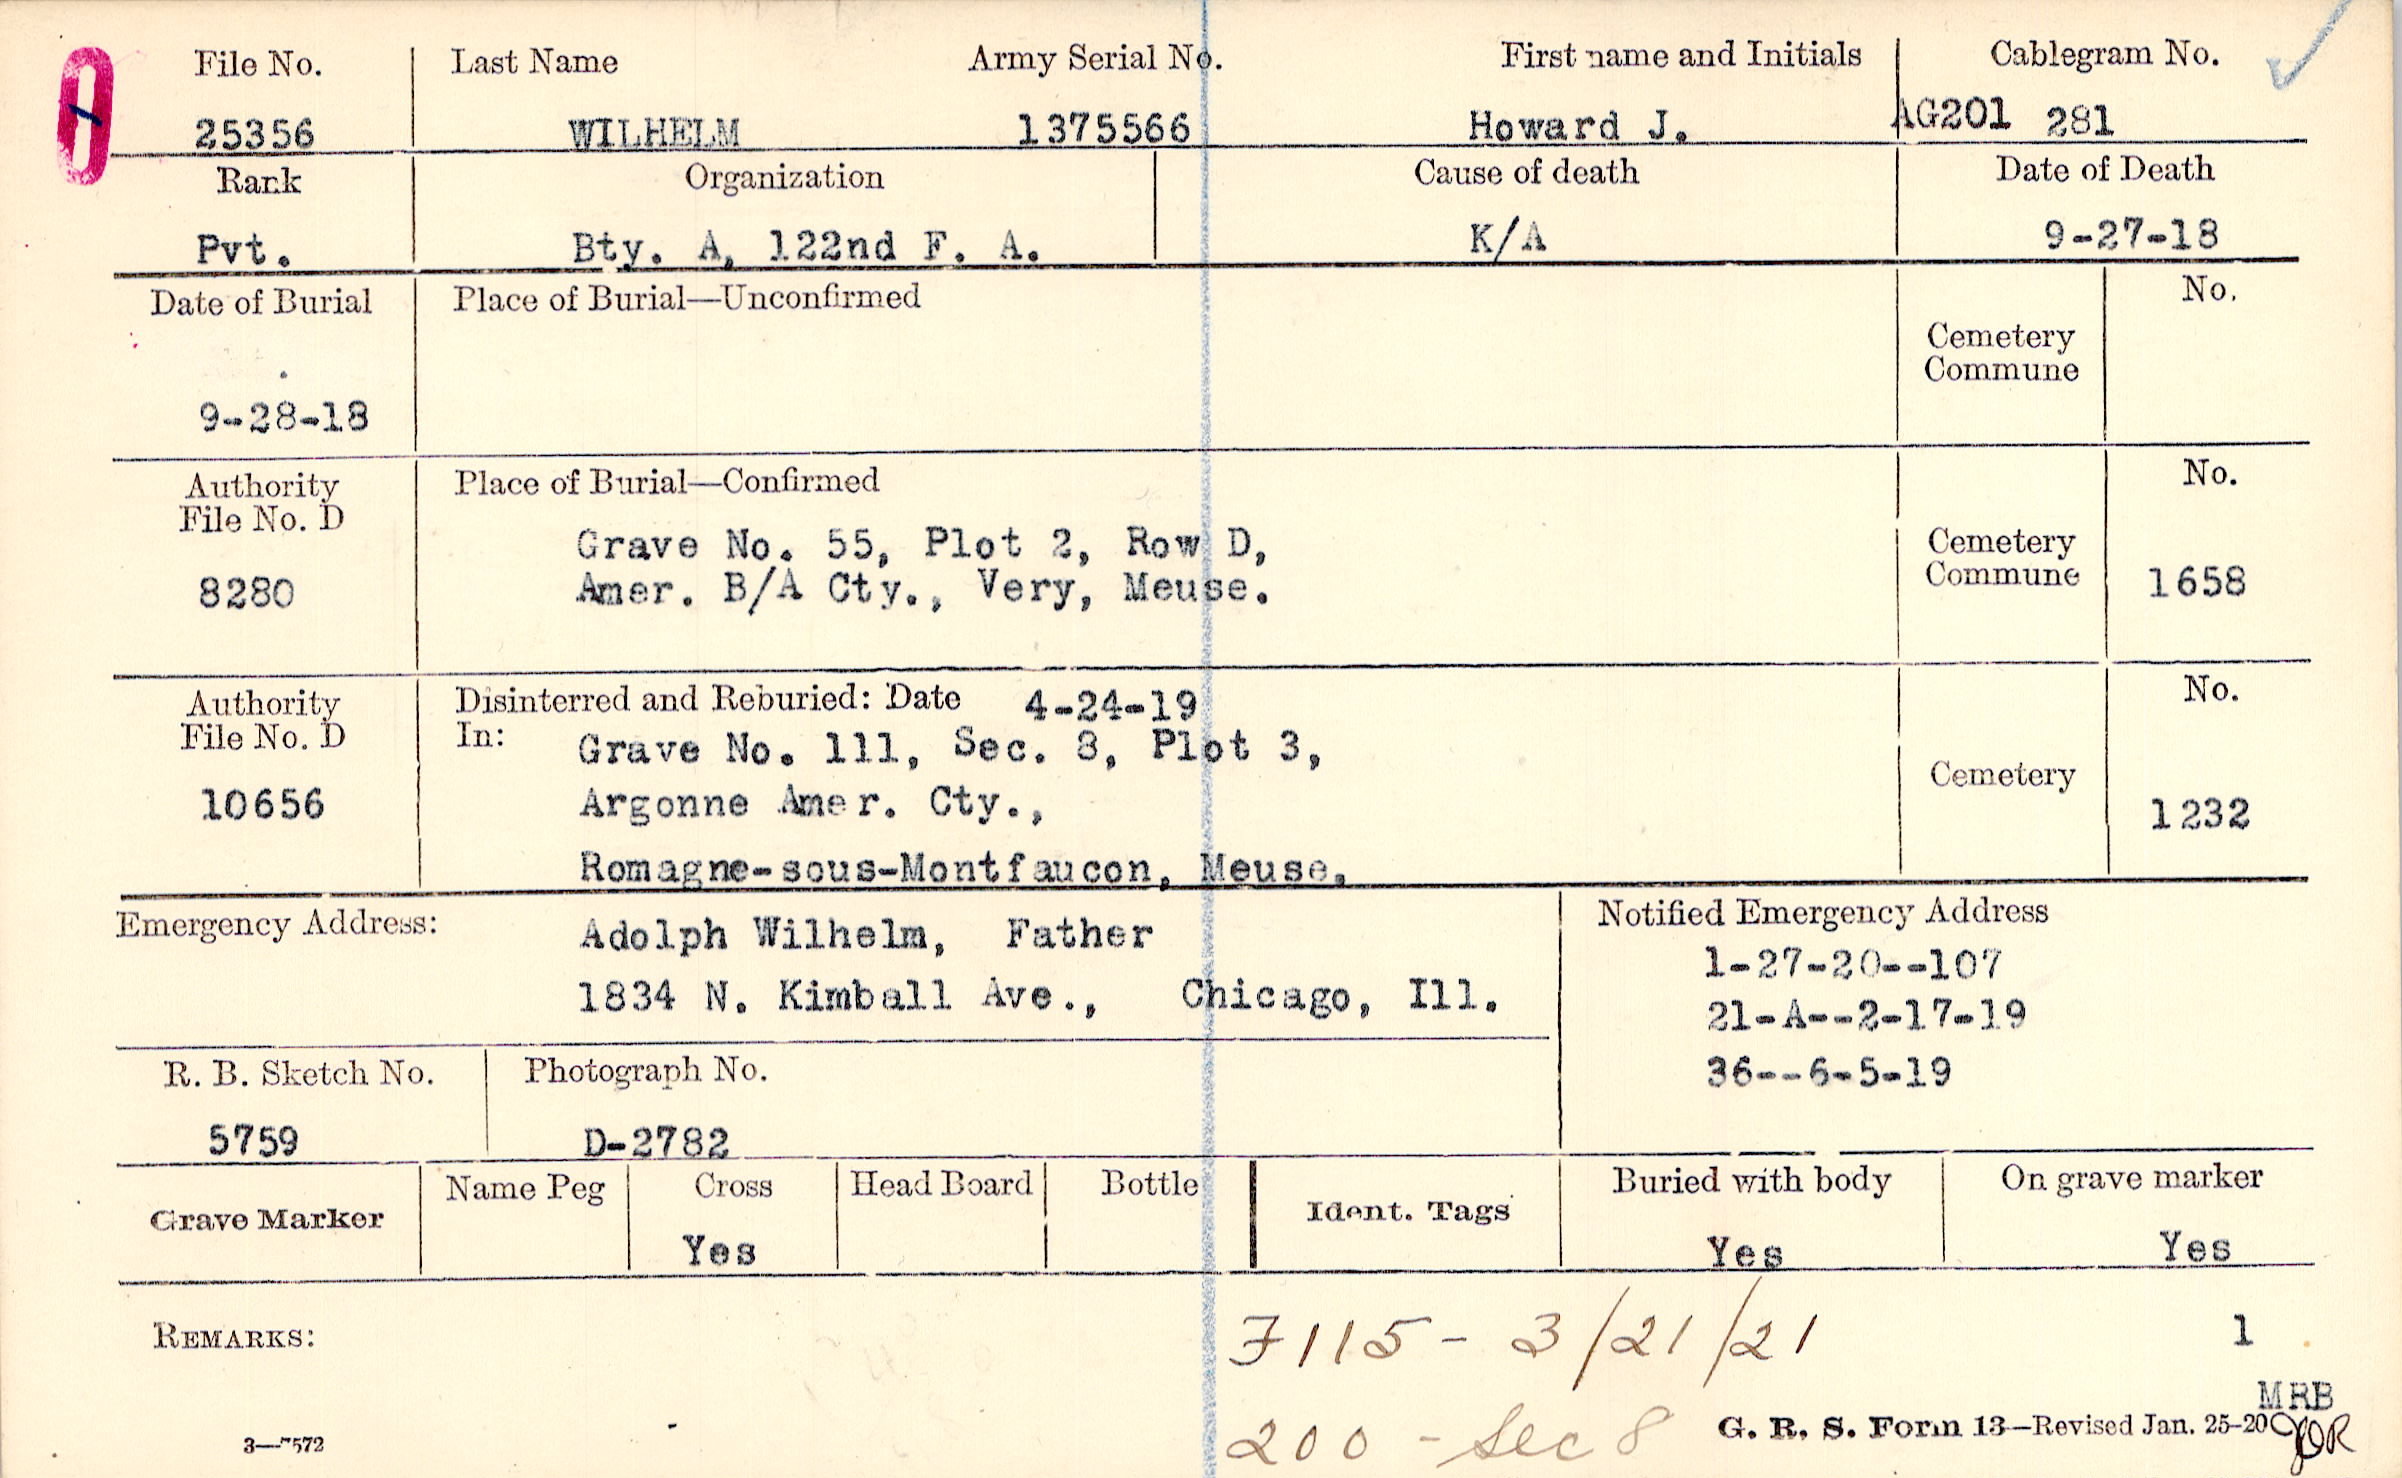 File No. Last Name Army Serial No. First name and Initials Cablegram No.
25356 WILHELM 1375566 Howard J. AG201 281
Rank Organization Cause of death Date of Death
Pvt. Bty. A, 122nd F. A. K/A 9-27-18
Date of Burial Place of Burial—Unconfirmed No.
Cemetery
Commune
9-28-18
Authority Place of Burial—Confirmed No.
File No. D
Grave No. 55, Plot 2, Row D, Cemetery
8280 Amer. B/A Cty., Very, Meuse. Commune 1658
Authority Disinterred and Reburied: Date 4-24-19 No.
File No. D In: Grave No. 111, Sec. 8, Plot 3,
Cemetery
10656 Argonne Amer. Cty., 1232
Romagne-sous-Montfaucon, Meuse.
Emergency Address: Adolph Wilhelm, Father Notified Emergency Address
1-27-20--107
1834 N. Kimball Ave., Chicago, Ill. 21-A--2-17-19
R. B. Sketch No. Photograph No. 36--6-5-19
5759 D-2782
Name Peg Cross Head Board Bottle Buried with body On grave marker
Grave Marker Ident. Tags
Yes Yes Yes
REMARKS: 7115 - 3/21/21 1
MRB
200 - Sec 8 G. R. S. Form 13—Revised Jan. 25-20
3—7572